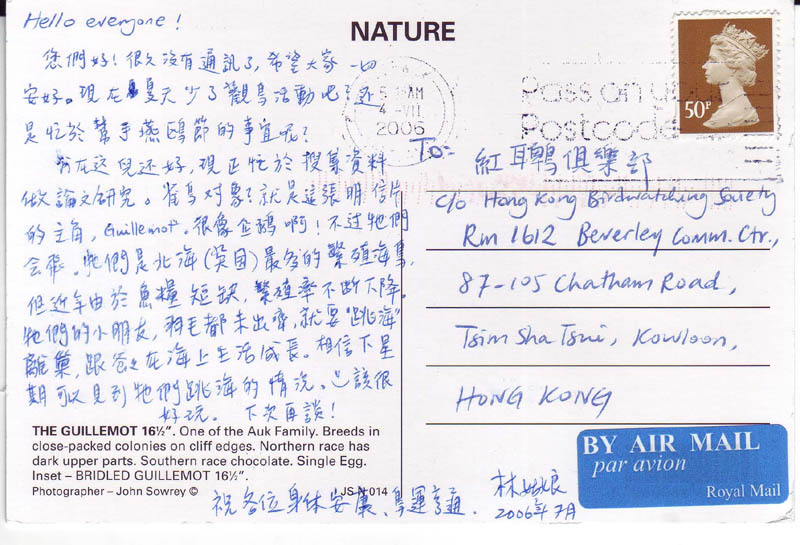 Hello everyone!
NATURE
您們好！很久沒有通訊了，希望大家一切
安好。現在夏天少了觀鳥活動吧？还
是忙於幫手燕鷗節的事宜呢？
在這兒还好，現正忙於搜集資料
做論文研究。雀鳥对象？就是這張明信片
的主角，Guillemot。很像企鵝啊！不过牠們
会飛。牠們是北海（英国）最多的繁殖海鳥，
但近年由於魚糧短缺，繁殖率不断下降。
牠們的小朋友，羽毛都未出齊，就要"跳海"
離巢，跟爸々在海上生活成長。相信下星
期可以見到牠們跳海的情況。該很
好玩。下次再談！
THE GUILLEMOT 16½". One of the Auk Family. Breeds in
close-packed colonies on cliff edges. Northern race has
dark upper parts. Southern race chocolate. Single Egg.
Inset – BRIDLED GUILLEMOT 16½".
Photographer – John Sowrey ©
014
祝各位身体安康、鳥運亨通。
林
2006年7月
50P
AM
4 - VII
2006
Pass on
Postcode
To:-
紅耳鵯俱樂部
c/o Hong Kong Birdwatching Society
Rm 1612 Beverley Comm. Ctr.,
87-105 Chatham Road,
Tsim Sha Tsui, Kowloon,
HONG KONG
BY AIR MAIL
par avion
Royal Mail